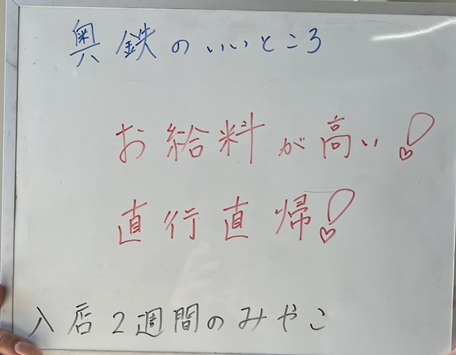 奥鉄のいいところ
お給料が高い!
直行直帰!
入店2週間のみやこ